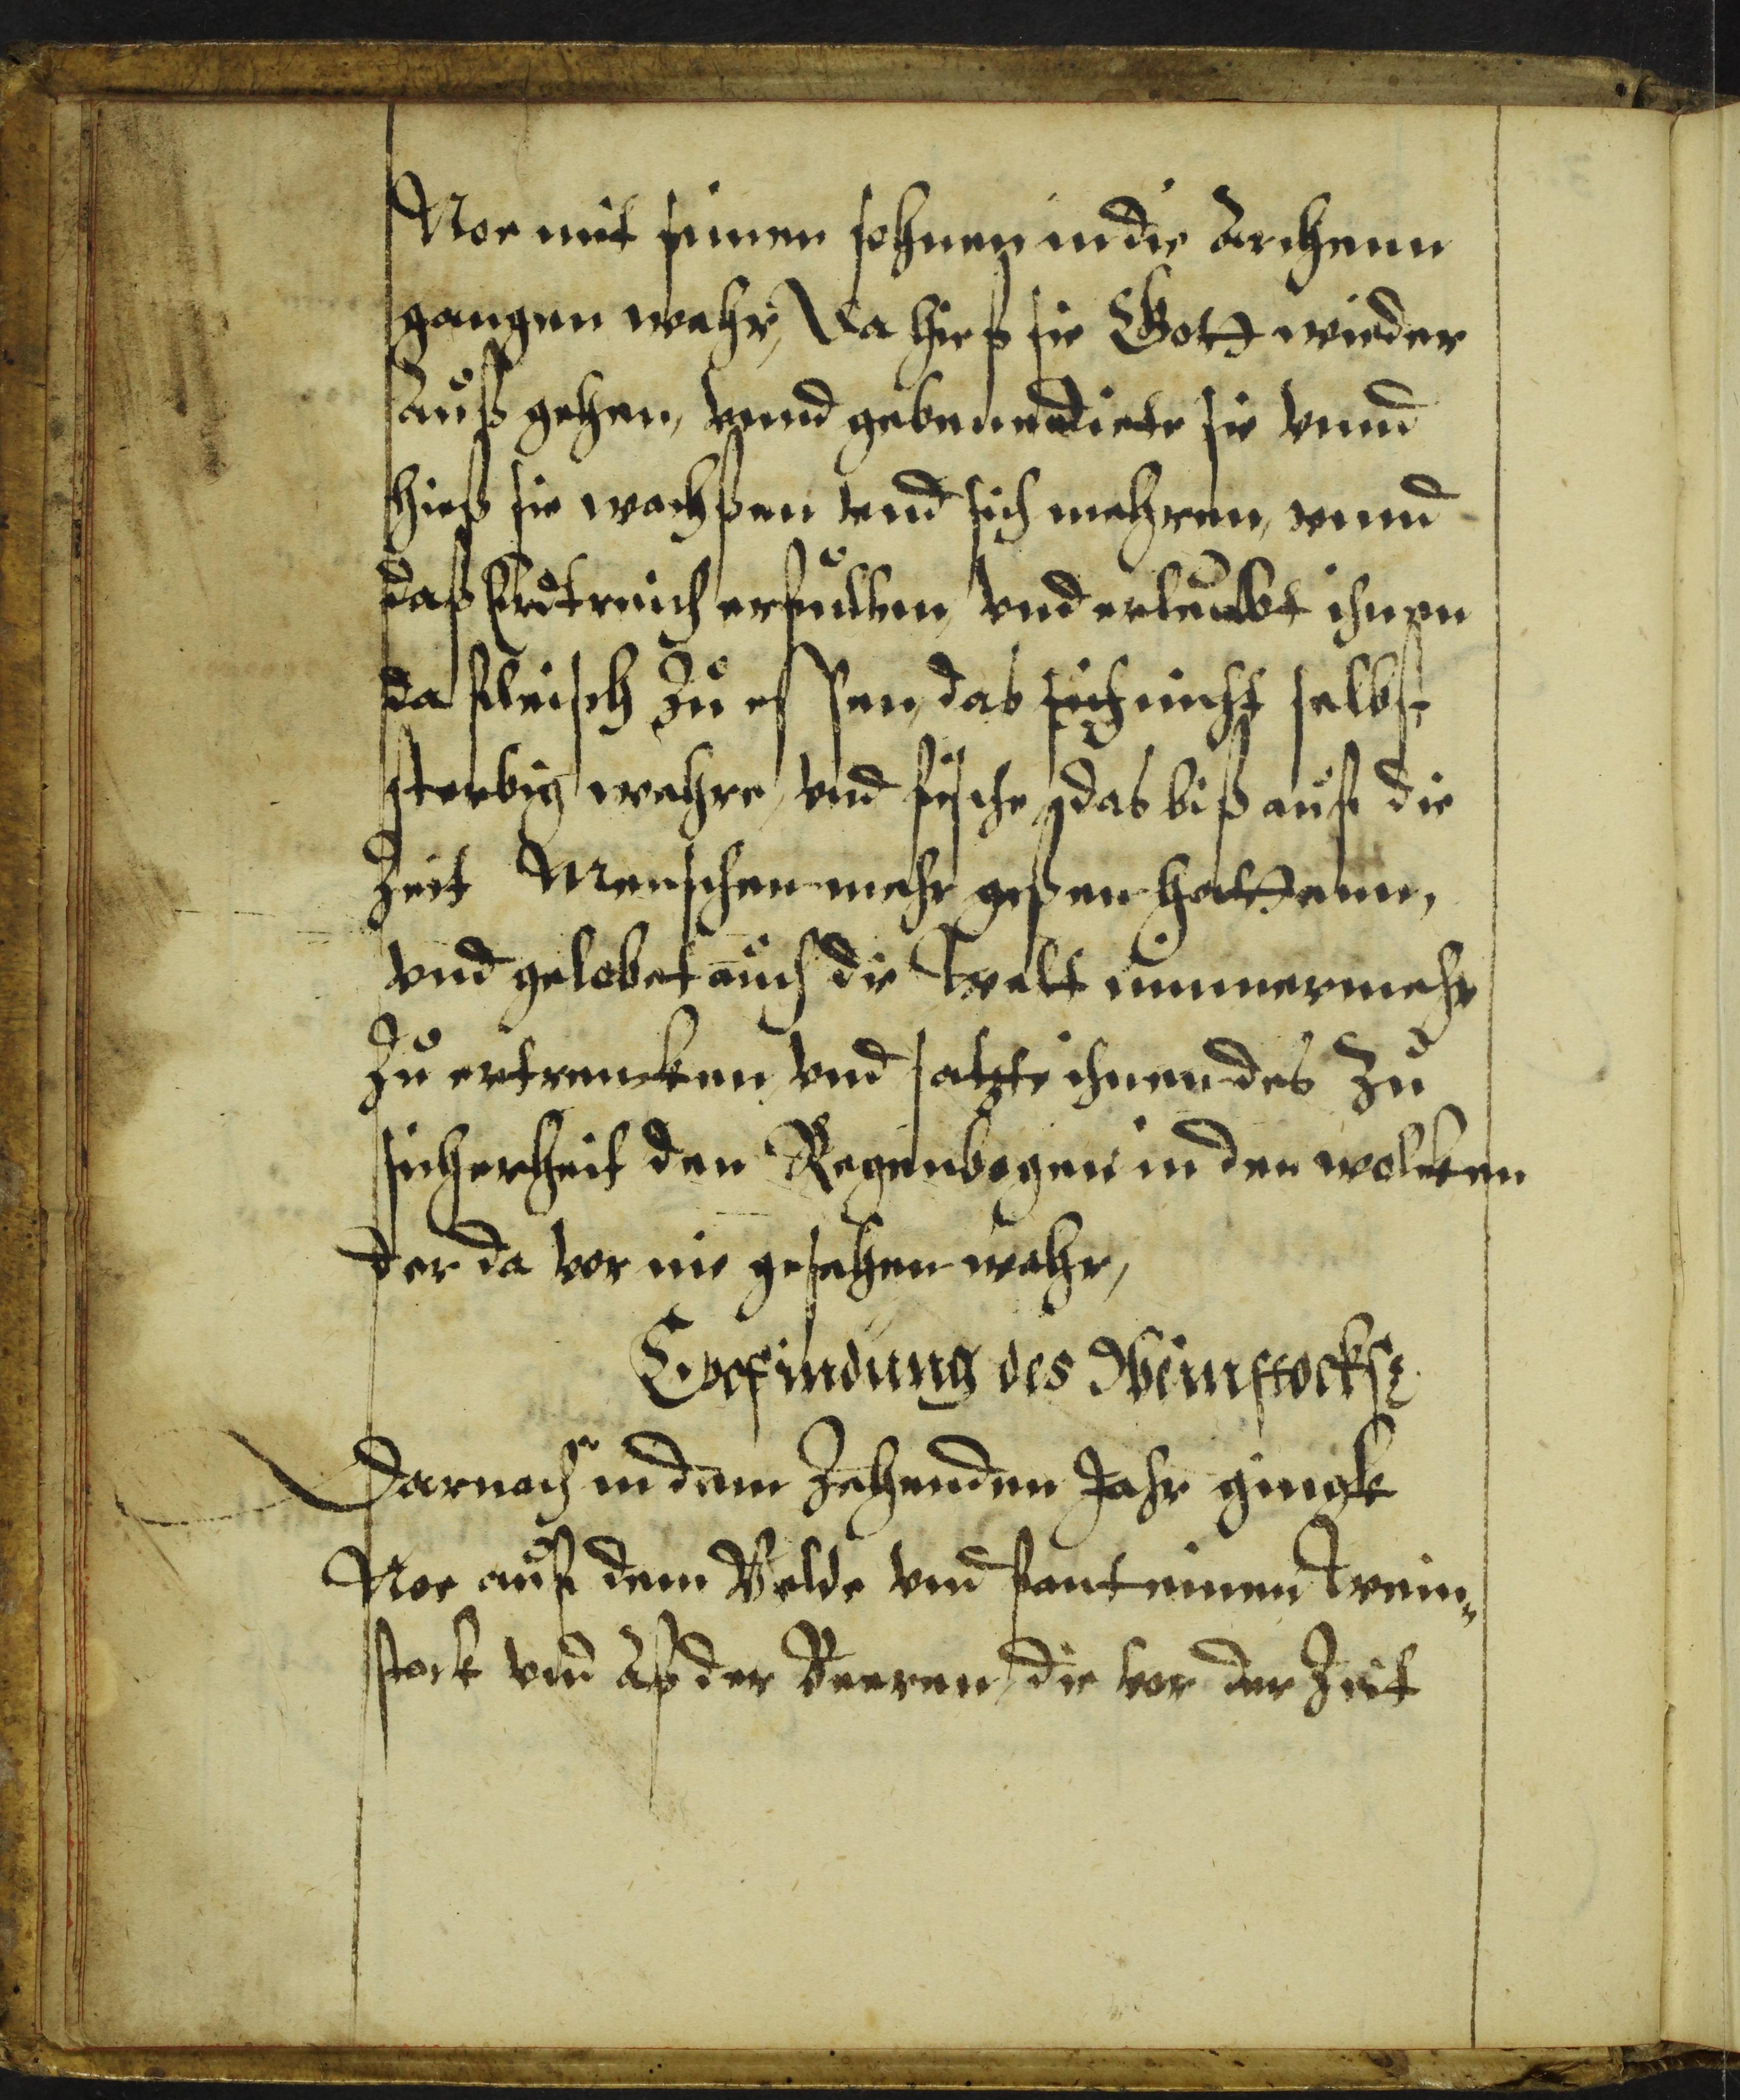 Noe mit seinen sohnen in die Archenn
gangen wahr, Da hieß sie Gott wieder
Auß gehen, vnnd gebennediete sie vnnd
hieß sie wachßen vnd sich mehren, vnnd
daß Erdtreich erfullen, vnd erleubt ihnen
da fleisch zu essen, das sich nicht selbst
sterbig wehre, vnd fische das biß auf die
Zeit Menschen mehr geßen hattenn,
vnd gelobet auch die Welt nimmermehr
Zu ertrencken vnd satzte ihnen des Zu
sicherheit den Regenbogen in den wolcken
der da vor nie gesehen wahr,
Erfindung des Weinstocks
Darnach in dem Zehenden Jahr gingk
Noe auf dem Velde vnd fant einen Wein„
stock vnd Aß der Beeren, die vor der Zeit